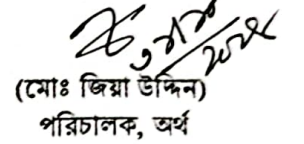 (মোঃ জিয়া উদ্দিন)
পরিচালক, অর্থ